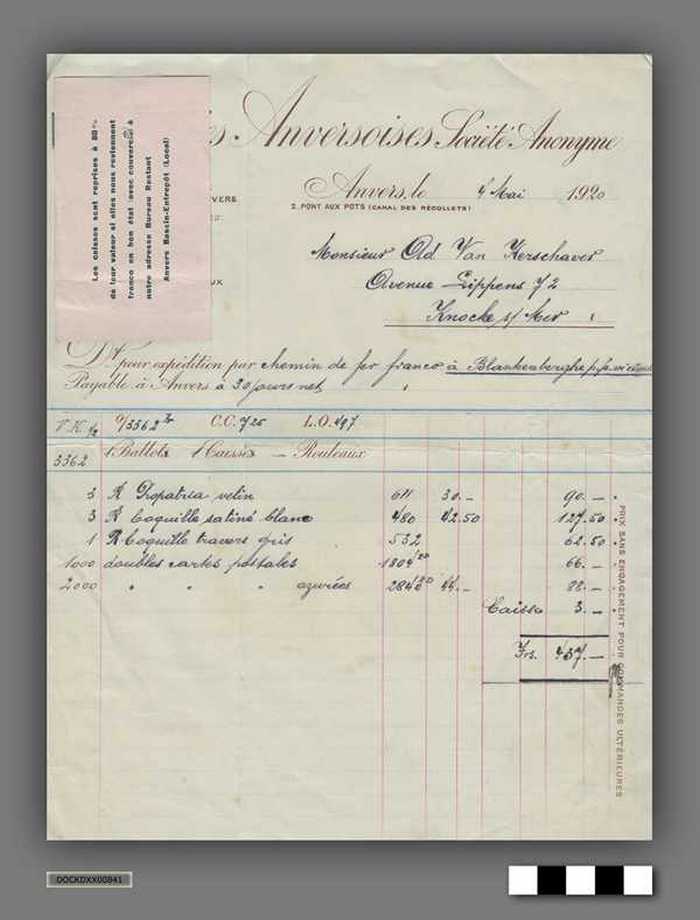 Les caisses sont reprises à 80%
de leur valeur si elles nous reviennent
franco en bon état (avec couvercle) à
notre adresse Bureau Restant
Anvers Bassin-Entrepôt (Local)
es Anversoises Société Anonyme
Anvers, le 4 Mai 1920
2, PONT AUX POTS (CANAL DES RÉCOLLETS)
VERS
UX
Monsieur Ad Van Kerschaver
Avenue Lippens 72
Knocke s/ Mer
Dt. pour expédition par chemin de fer franco à Blankenberghe
Payable à Anvers à 30 jours net
V.K. O/3362 C.C. 725 L.O. 497
3362 1 Ballots 1 Caisses — Rouleaux
3 R Propatria velin 611 30.— 90.—
3 R Coquille satiné blanc 480 42.50 127.50
1 R Coquille travers gris 532 62.50
1000 doubles cartes postales 66.—
2000 " " " azurées 44.— 88.—
Caisse 3.—
Frs. 437.—
PRIX SANS ENGAGEMENT POUR COMMANDES ULTÉRIEURES
DOCKDXX00841